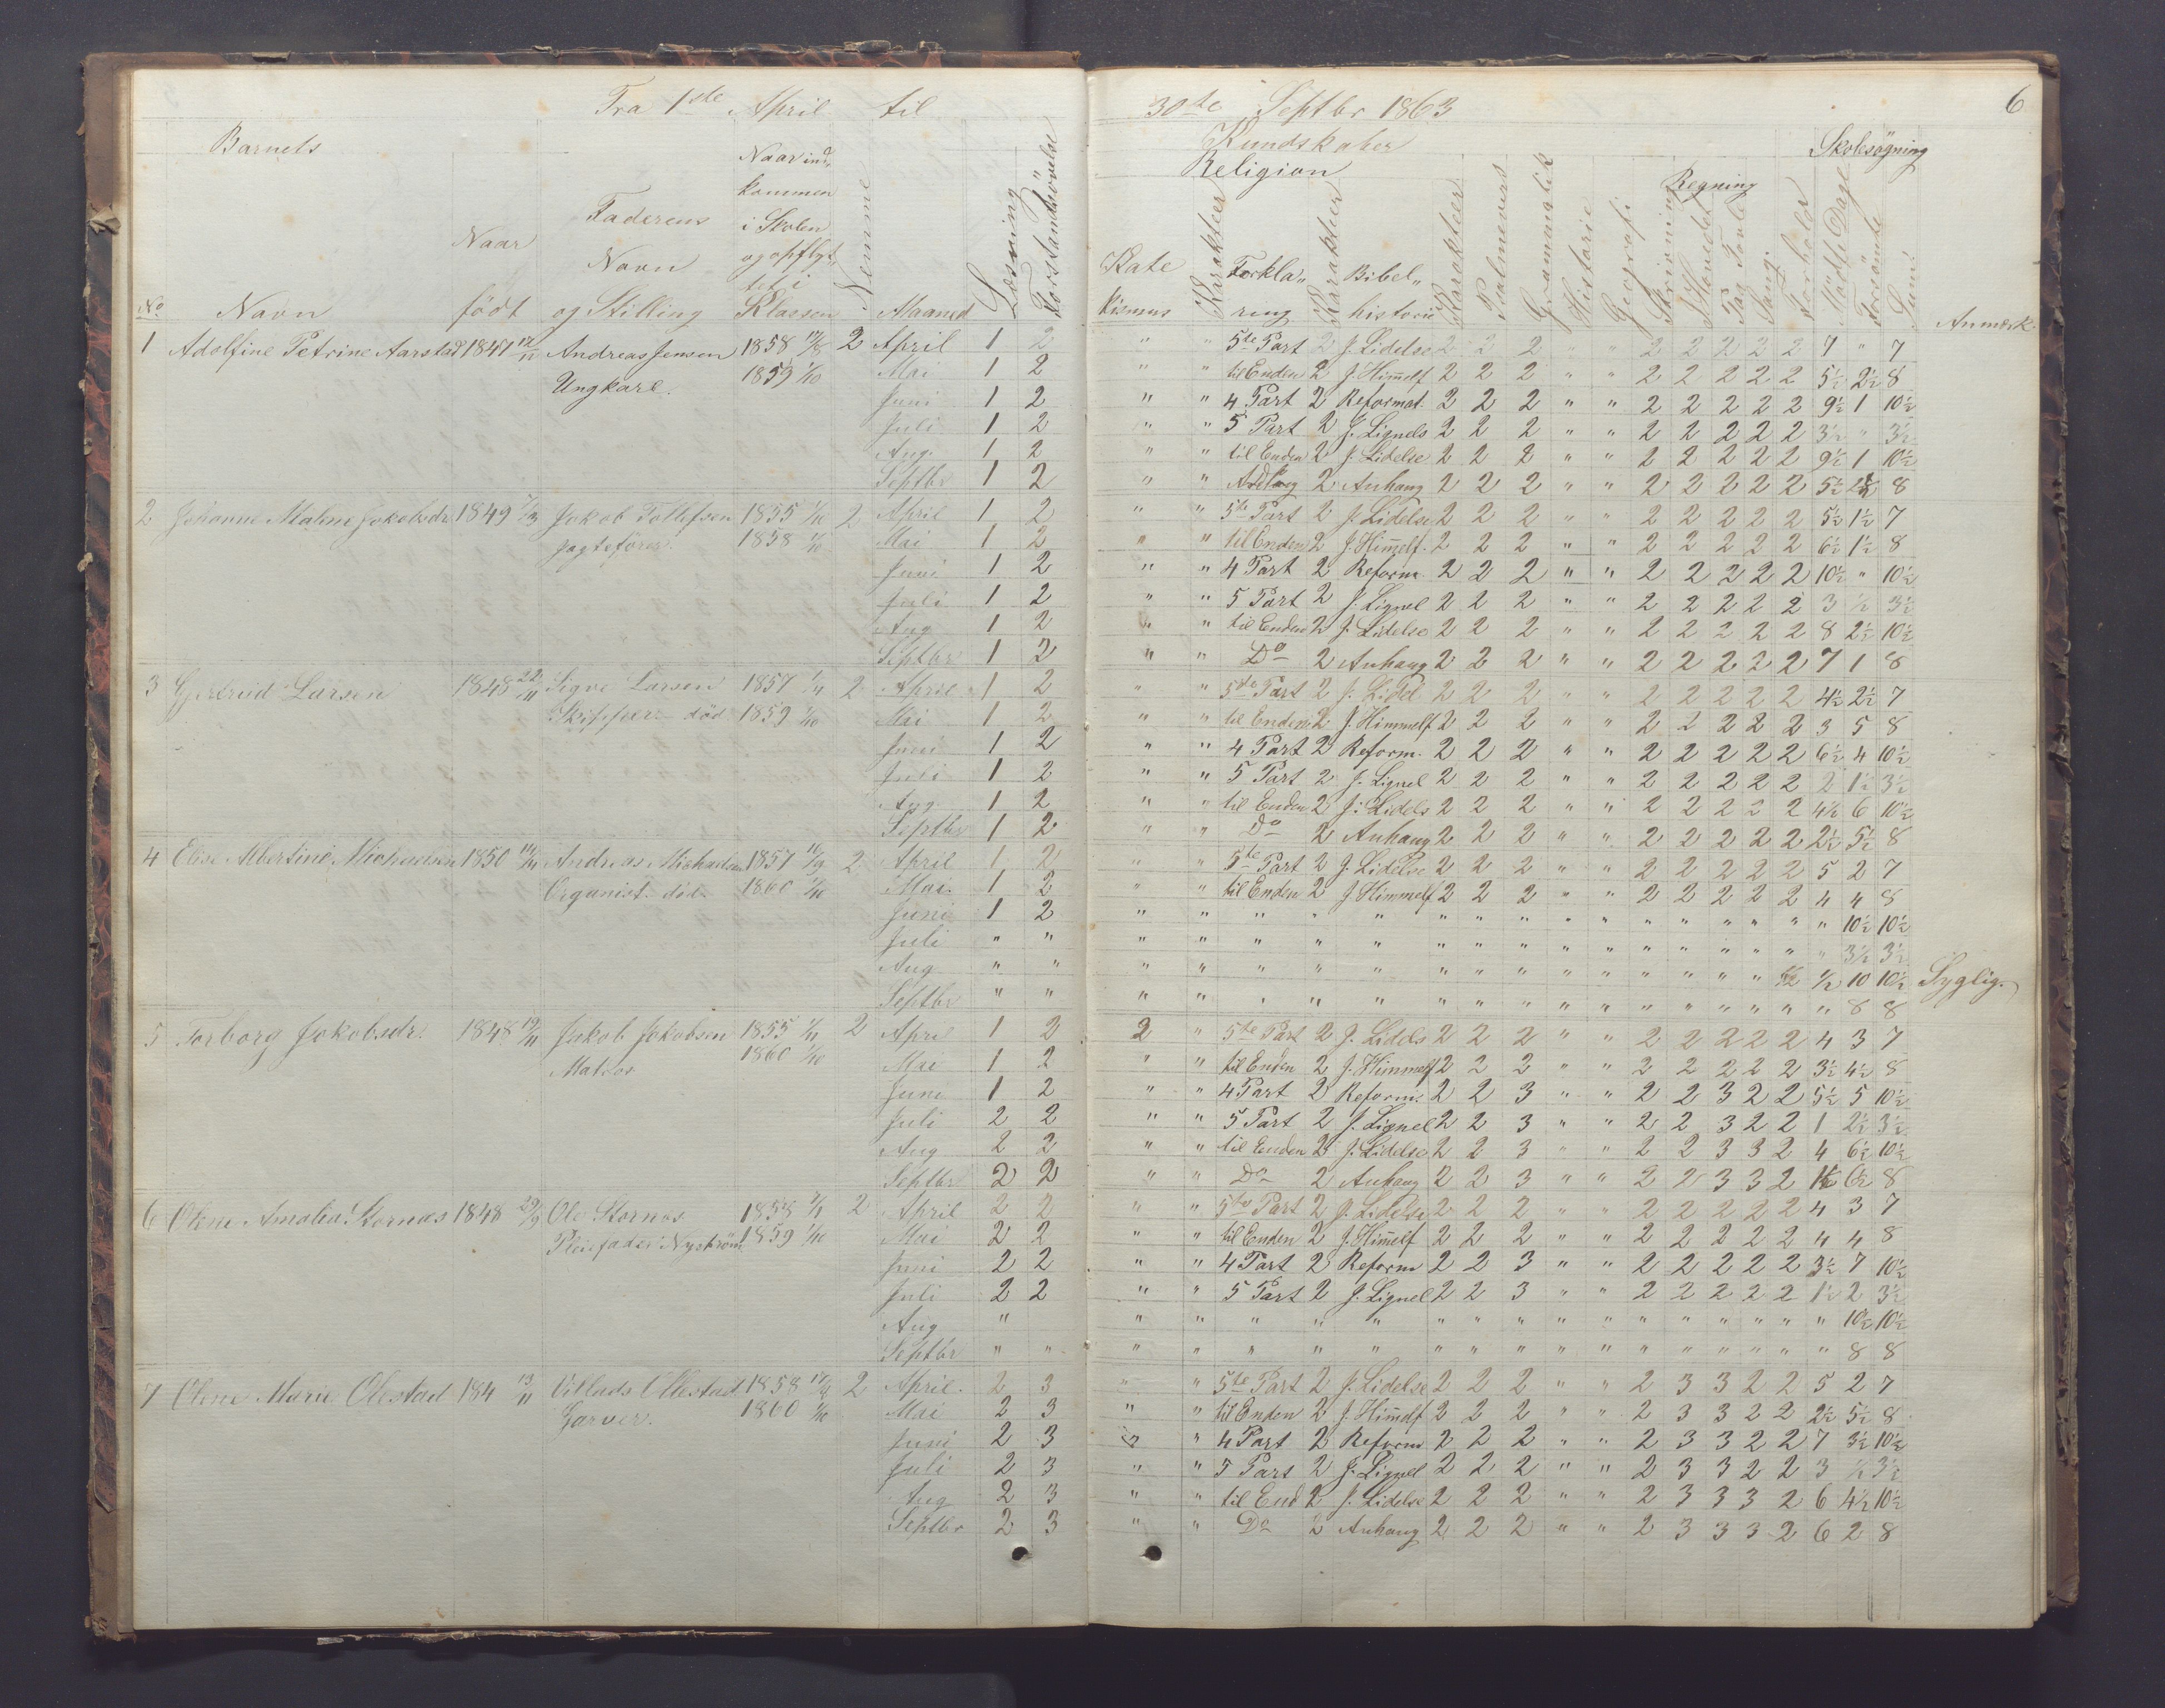 Fra 1ste April til 30te Septbr 1863
6
Barnets
Kundskaber
Skolesøgning
No Navn Naar født Faderens Navn og Stilling Naar ind„kommen i Skolen og opflyt„tet i Klassen Nemme Maaned Læsning Forstandsøvelse
Religion
Regning
Kate kismus Karakteer Forkla„ring Karakteer Bibel„historie Karakteer Psalmevers Grammatik Historie Geografi Skrivning I Hovedet Paa Tavle Sang Forhold Mødte Dage Forsømte Sum Anmærk.
1 Adolfine Petrine Aarstad Andreas Jensen 1858 2 April 1 2 " " 5te Part 2 J. Lidelse 2 2 2 " " 2 2 2 2 2 7 " 7
Ungkarl. 1859 1/10 Mai 1 2 " " til Enden 2 J. Himelf 2 2 2 " " 2 2 2 2 2 5½ 2½ 8
Juni 1 2 " " 4 Part 2 Reformat. 2 2 2 " " 2 2 2 2 2 9½ 1 10½
Juli 1 2 " " 5 Part 2 J. Lignels 2 2 2 " " 2 2 2 2 2 3½ " 3½
Aug. 1 2 " " til Enden 2 J. Lidelse 2 2 2 " " 2 2 2 2 2 9½ 1 10½
Septbr 1 2 " " 2 Anhang 2 2 2 " " 2 2 2 2 2 5½ 8
2 Johanne Malene Jakobsdr 1849 Jakob Tollefsen 1855 1/10 2 April 1 2 " " 5te Part 2 J. Lidelse 2 2 2 " " 2 2 2 2 2 5½ 1½ 7
Jagtefører. 1858 1/10 Mai 1 2 " " til Enden 2 J. Himelf. 2 2 2 " " 2 2 2 2 2 6½ 1½ 8
Juni 1 2 " " 4 Part 2 Reform. 2 2 2 " " 2 2 2 2 2 10½ " 10½
Juli 1 2 " " 5 Part 2 J. Lignel 2 2 2 " " 2 2 2 2 2 3 ½ 3½
Aug 1 2 " " til Enden 2 J. Lidelse 2 2 2 " " 2 2 2 2 2 8 2½ 10½
Septbr 1 2 " " Do 2 Anhang 2 2 2 " " 2 2 2 2 2 7 1 8
3 Gjertrud Larsen 1848 22/11 Sigve Larsen 1857 2 April 1 2 " " 5te Part 2 J. Lidel 2 2 2 " " 2 2 2 2 2 4½ 2½ 7
Skipper død 1859 1/10 Mai 1 2 " " til Enden 2 J. Himmelf 2 2 2 " " 2 2 2 2 2 3 5 8
Juni 1 2 " " 4 Part 2 Reform. 2 2 2 " " 2 2 2 2 2 6½ 4 10½
Juli 1 2 " " 5 Part 2 J. Lignel 2 2 2 " " 2 2 2 2 2 2 1½ 3½
Aug. 1 2 " " til Enden 2 J. Lidels 2 2 2 " " 2 2 2 2 2 4½ 6 10½
Septbr 1 2 " " Do 2 Anhang 2 2 2 " " 2 2 2 2 2 2½ 5½ 8
4 Elise Albertine Michaelsen 1850 Andreas Michaelsen 1857 2 April 1 2 " " 5te Part 2 J. Lidelse 2 2 2 " " 2 2 2 2 2 5 2 7
Organist. død. 1860 1/10 Mai. 1 2 " " til Enden 2 J Himmelf 2 2 2 " " 2 2 2 2 2 4 4 8
Juni 1 2 " " " " " " " " " " " " " " " " 10½ 10½
Juli " " " " " " " " " " " " " " " " " " 3½ 3½
Aug " " " " " " " " " " " " " " " " ½ 10 10½ Syglig.
Septbr " " " " " " " " " " " " " " " " " " 8 8
5 Torborg Jakobsdr. 1848 19/11 Jakob Jakobsen 1855 2 April 1 2 2 " 5te Part 2 J. Lidels 2 2 2 " " 2 2 2 2 2 4 3 7
Matros 1860 1/10 Mai 1 2 " " til Enden 2 J. Himmelf 2 2 2 " " 2 2 2 2 2 3½ 4½ 8
Juni 1 2 " " 4 Part 2 Reform. 2 2 3 " " 2 2 3 2 2 5½ 5 10½
Juli 2 2 " " 5 Part 2 J. Lignel 2 2 3 " " 2 2 3 2 2 1 2½ 3½
Aug 2 2 " " til Enden 2 J. Lidelse 2 2 3 " " 2 2 3 3 2 4 6½ 10½
Septbr 2 2 " " Do 2 Anhang 2 2 3 " " 2 2 3 3 2 1½ 6½ 8
6 Olene Amalia Stornæs 1848 29/9 Ole Stornæs 1858 2 April 2 2 " " 5te Part 2 J. Lidelse 2 2 2 " " 2 2 2 2 2 4 3 7
Pleiefader: Nystrøm 1859 1/10 Mai 2 2 " " til Enden 2 J. Himelf 2 2 2 " " 2 2 2 2 2 4 4 8
Juni 2 2 " " 4 Part 2 Reform 2 2 3 " " 2 2 2 2 2 3½ 7 10½
Juli 2 2 " " 5 Part 2 J. Lignel 2 2 3 " " 2 2 2 2 2 1½ 2 3½
Aug " " " " " " " " " " " " " " " " " 10½ 10½
Septbr " " " " " " " " " " " " " " " " " " 8 8
7 Olene Marie Olestad 184 13/11 Villads Ollestad 1858 2 April. 2 3 " " 5te Part 2 J. Lidelse 2 2 2 " " 2 3 3 2 2 5 2 7
Garver. 1860 1/10 Mai 2 3 " " til Enden 2 J. Himelf 2 2 2 " " 2 3 3 2 2 2½ 5½ 8
Juni 2 3 " 4 Part 2 Reform 2 2 2 " " 2 3 3 2 2 7 3½ 10½
Juli 2 3 " " 5 Part 2 J. Lignel 2 2 2 " " 2 3 3 2 2 3 ½ 3½
Aug 2 3 " " til End 2 J. Lidelse 2 2 2 " " 2 3 3 3 2 6 4½ 10½
Septbr 2 3 " " Do 2 Anhang 2 2 2 " " 2 3 3 3 2 6 2 8